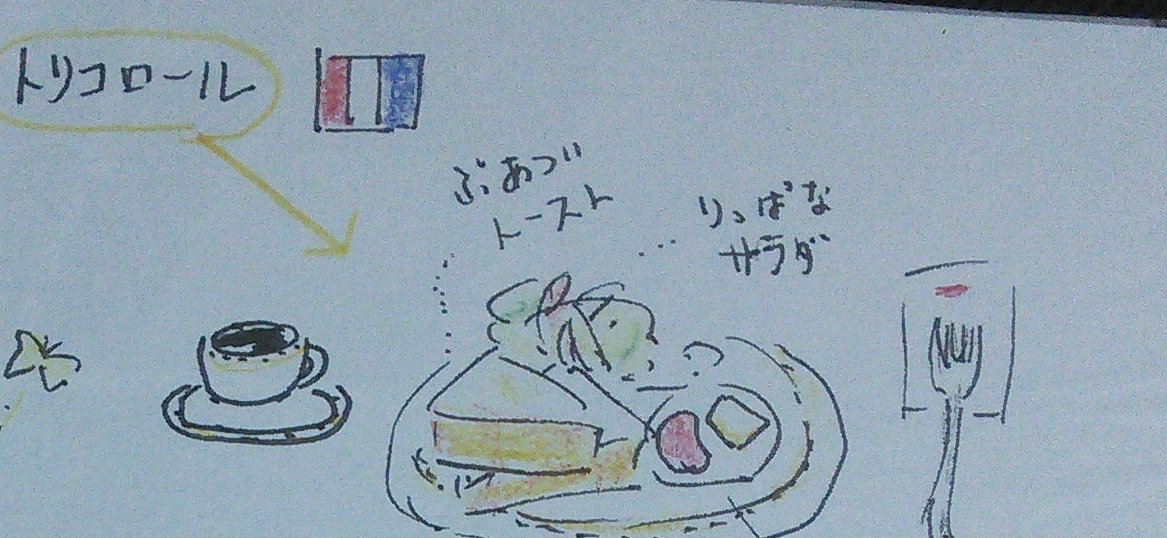 トリコロール
ぶあつい
トースト
りっぱな
サラダ